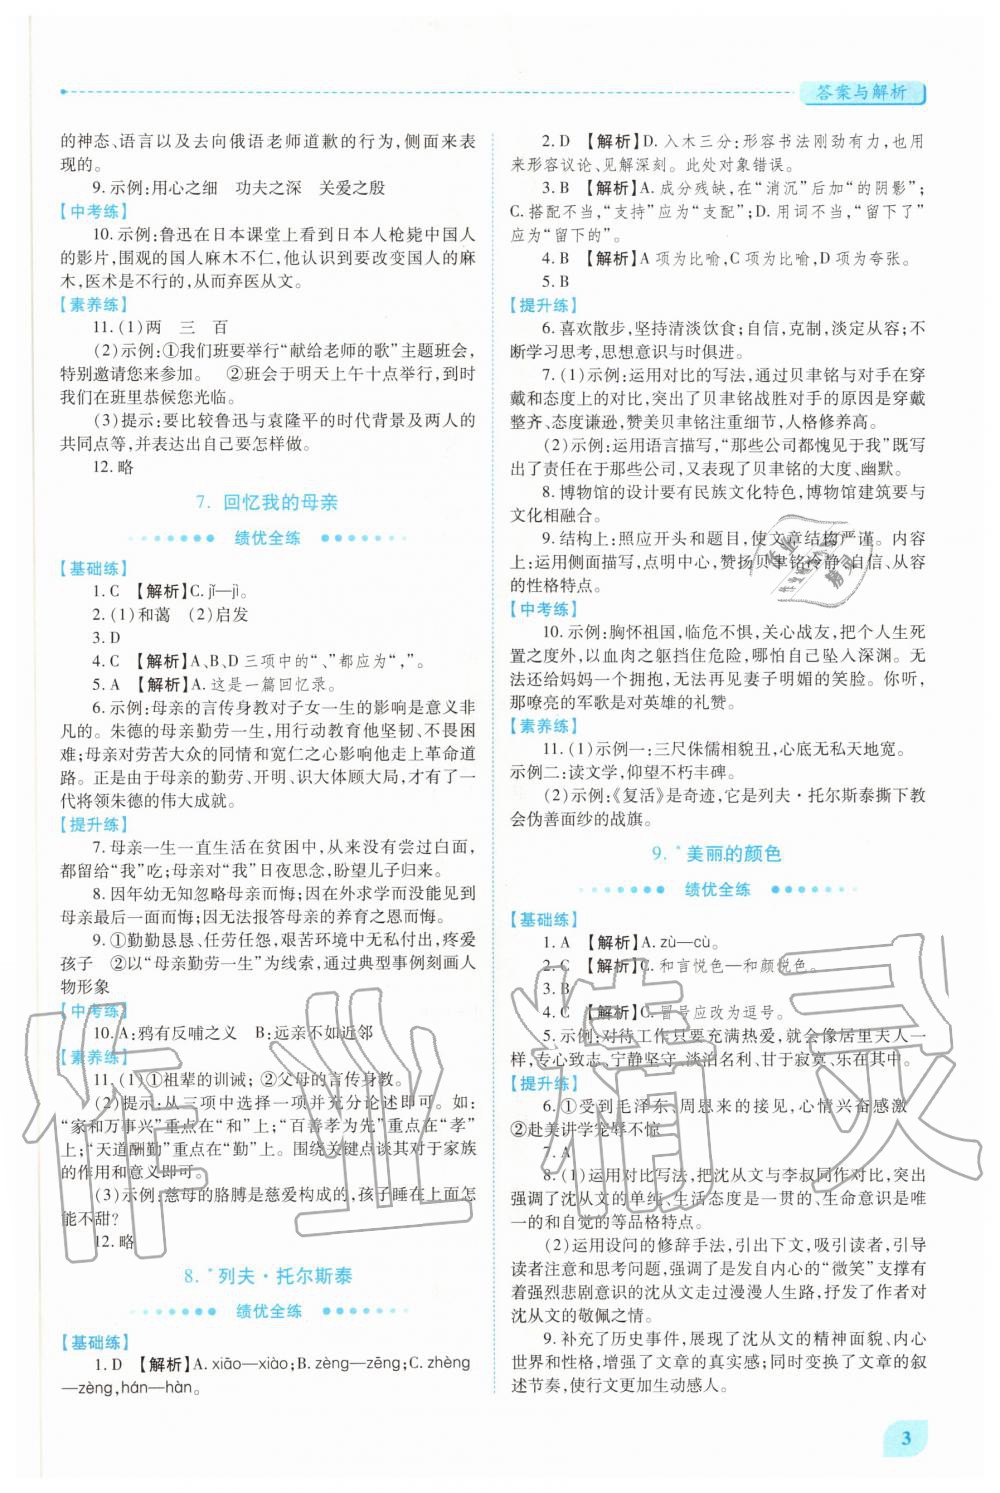 答案与解析
的神态、语言以及去向俄语老师道歉的行为,侧面来表
现的。
9. 示例:用心之细 功夫之深 关爱之殷
【中考练】
10. 示例:鲁迅在日本课堂上看到日本人枪毙中国人
的影片,围观的国人麻木不仁,他认识到要改变国人的麻
木,医术是不行的,从而弃医从文。
【素养练】
11. (1)两 三 百
(2)示例:①我们班要举行“献给老师的歌”主题班会,
特别邀请您来参加。 ②班会于明天上午十点举行,到时
我们在班里恭候您光临。
(3)提示:要比较鲁迅与袁隆平的时代背景及两人的
共同点等,并表达出自己要怎样做。
12. 略
7. 回忆我的母亲
绩优全练
【基础练】
1. C 【解析】C. jǐ—jì。
2. (1)和蔼 (2)启发
3. D
4. C 【解析】A、B、D 三项中的“、”都应为“,”。
5. A 【解析】A. 这是一篇回忆录。
6. 示例:母亲的言传身教对子女一生的影响是意义非
凡的。朱德的母亲勤劳一生,用行动教育他无惧一切困
难;母亲对劳苦大众的同情和宽仁之心影响他走上革命道
路。正是由于母亲的勤劳、开明、识大体顾大局,才有了一
代将领朱德的伟大成就。
【提升练】
7. 母亲一生一直生活在贫困中,从来没过好日子,却
都留给“我”吃;母亲对“我”日夜思念,盼望儿子归来。
8. 因年幼无知忽略母亲而悔;因在外求学而没能见到
母亲最后一面而悔;因无法报答母亲的养育之恩而悔。
9. ①勤勤恳恳、任劳任怨,艰苦环境中无私付出,疼爱
孩子 ②以“母亲勤劳一生”为线索,通过典型事例刻画人
物形象
【中考练】
10. A:鸦有反哺之义 B:远亲不如近邻
【素养练】
11. (1)①祖辈的训诫;②父母的言传身教。
(2)提示:从三项中选择一项并充分论述即可。如:
“家和万事兴”重点在“和”上;“百善孝为先”重点在“孝”
上;“天道酬勤”重点在“勤”上。围绕关键点谈其对于家族
的作用和意义即可。
(3)示例:慈母的胳膊是慈爱构成的,孩子睡在上面怎
能不甜?
12. 略
8. *列夫·托尔斯泰
绩优全练
【基础练】
1. D 【解析】A. xiāo—xiào;B. zèng—zēng;C. zhèng
—zèng,hán—hàn。
2. D 【解析】D. 入木三分:形容书法刚劲有力,也用
来形容议论、见解深刻。此处对象错误。
3. B 【解析】A. 成分残缺,在“消沉”后加“的阴影”;
C. 搭配不当,“支持”应为“支配”;D. 用词不当,“留下了”
应为“留下的”。
4. B 【解析】A 项为比喻,C 项为比喻,D 项为夸张。
5. B
【提升练】
6. 喜欢散步,坚持清淡饮食;自信,克制,淡定从容;不
断学习思考,思想意识与时俱进。
7. (1)示例:运用对比的写法,通过贝聿铭与对手在穿
戴和态度上的对比,突出了贝聿铭战胜对手的原因是穿戴
整齐、态度谦逊,赞美贝聿铭注重细节,人格修养高。
(2)示例:运用语言描写,“那些公司都愧见于我”既写
出了责任在于那些公司,又展现了贝聿铭的大度、幽默。
8. 博物馆的设计要有民族文化特色,博物馆建筑要与
文化相融合。
9. 结构上:照应开头和题目,使文章结构严谨。内容
上:运用侧面描写,点明中心,赞扬贝聿铭冷静、自信、从容
的性格特点。
【中考练】
10. 示例:胸怀祖国,临危不惧,关心战友,把个人生死
置之度外,以血肉之躯挡住危险,哪怕自己坠入深渊。无
法还给妈妈一个拥抱,无法再见妻子明媚的笑脸。你听,
那嘹亮的军歌是对英雄的礼赞。
【素养练】
11. (1)示例一:三尺侏儒相貌丑,心底无私天地宽。
示例二:读文学,仰望不朽丰碑。
(2)示例:《复活》是奇迹,它是列夫·托尔斯泰撕下教
会伪善面纱的战旗。
9. *美丽的颜色
绩优全练
【基础练】
1. A 【解析】A. zù—cù。
2. C 【解析】C. 和言悦色—和颜悦色。
3. B
4. C 【解析】C. 冒号应改为逗号。
5. 示例:对待工作只要充满热爱,就会像居里夫人一
样,专心致志、宁静坚守、淡泊名利、甘于寂寞、乐在其中。
【提升练】
6. ①受到毛泽东、周恩来的接见,心情兴奋感激
②赴美讲学宠辱不惊
7. A
8. (1)运用对比写法,把沈从文与李叔同作对比,突出
强调了沈从文的单纯、生活态度是一贯的、生命意识是唯
一的和自觉的等品格特点。
(2)运用设问的修辞手法,引出下文,吸引读者,引导
读者注意和思考问题,强调了发自内心的“微笑”两字在有
着强烈悲剧意识的沈从文走过漫漫人生路,抒发了作者对
沈从文的敬佩之情。
9. 补充了历史事件,展现了沈从文的精神面貌、内心
世界和性格,增强了文章的真实感;同时变换了文章的叙
述节奏,使行文更加生动感人。
3
作业精灵